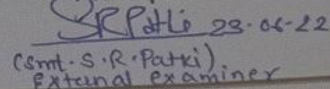 SRPatki 23-06-22
(Smt. S. R. Patki)
External examiner